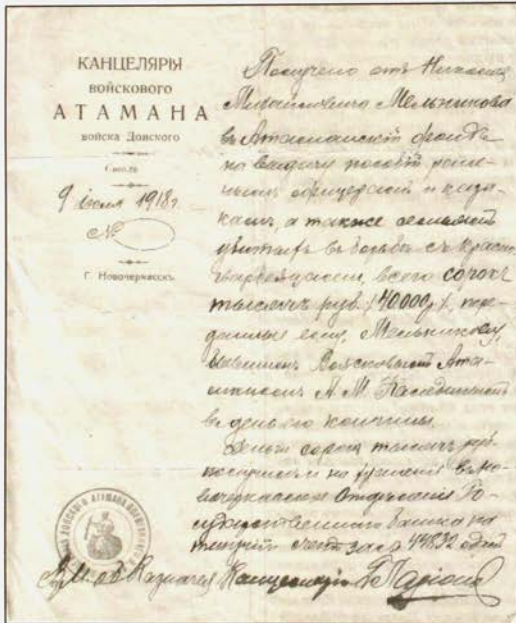 КАНЦЕЛЯРЫ
ВОЙСКОВОГО
АТАМАНА
войска Донского
9 июля 1918 г.
№
Г. Новочеркасскъ.
Получено отъ Николая
Михайловича Мельникова
въ Атаманскій фондъ
на выдачу пособій
офицерамъ и каза-
камъ, а также семьямъ
убитыхъ въ борьбѣ съ красно-
гвардейцами, всего сорокъ
тысячъ руб. /40000 р/, пере-
данные ему, Мельникову,
бывшимъ Войсковымъ Ата-
маномъ А. М. Калединымъ
въ день его кончины.
Деньги сорокъ тысячъ руб
въ Но-
вочеркасское Отдѣленіе Го-
сударственнаго Банка на
текущій счетъ за № 44832
Казначея Канцеляріи